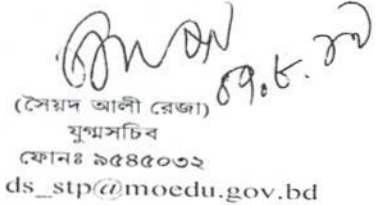 (সৈয়দ আলী রেজা)
যুগ্মসচিব
ফোনঃ ৯৫৪৫০৩২
ds_stp@moedu.gov.bd